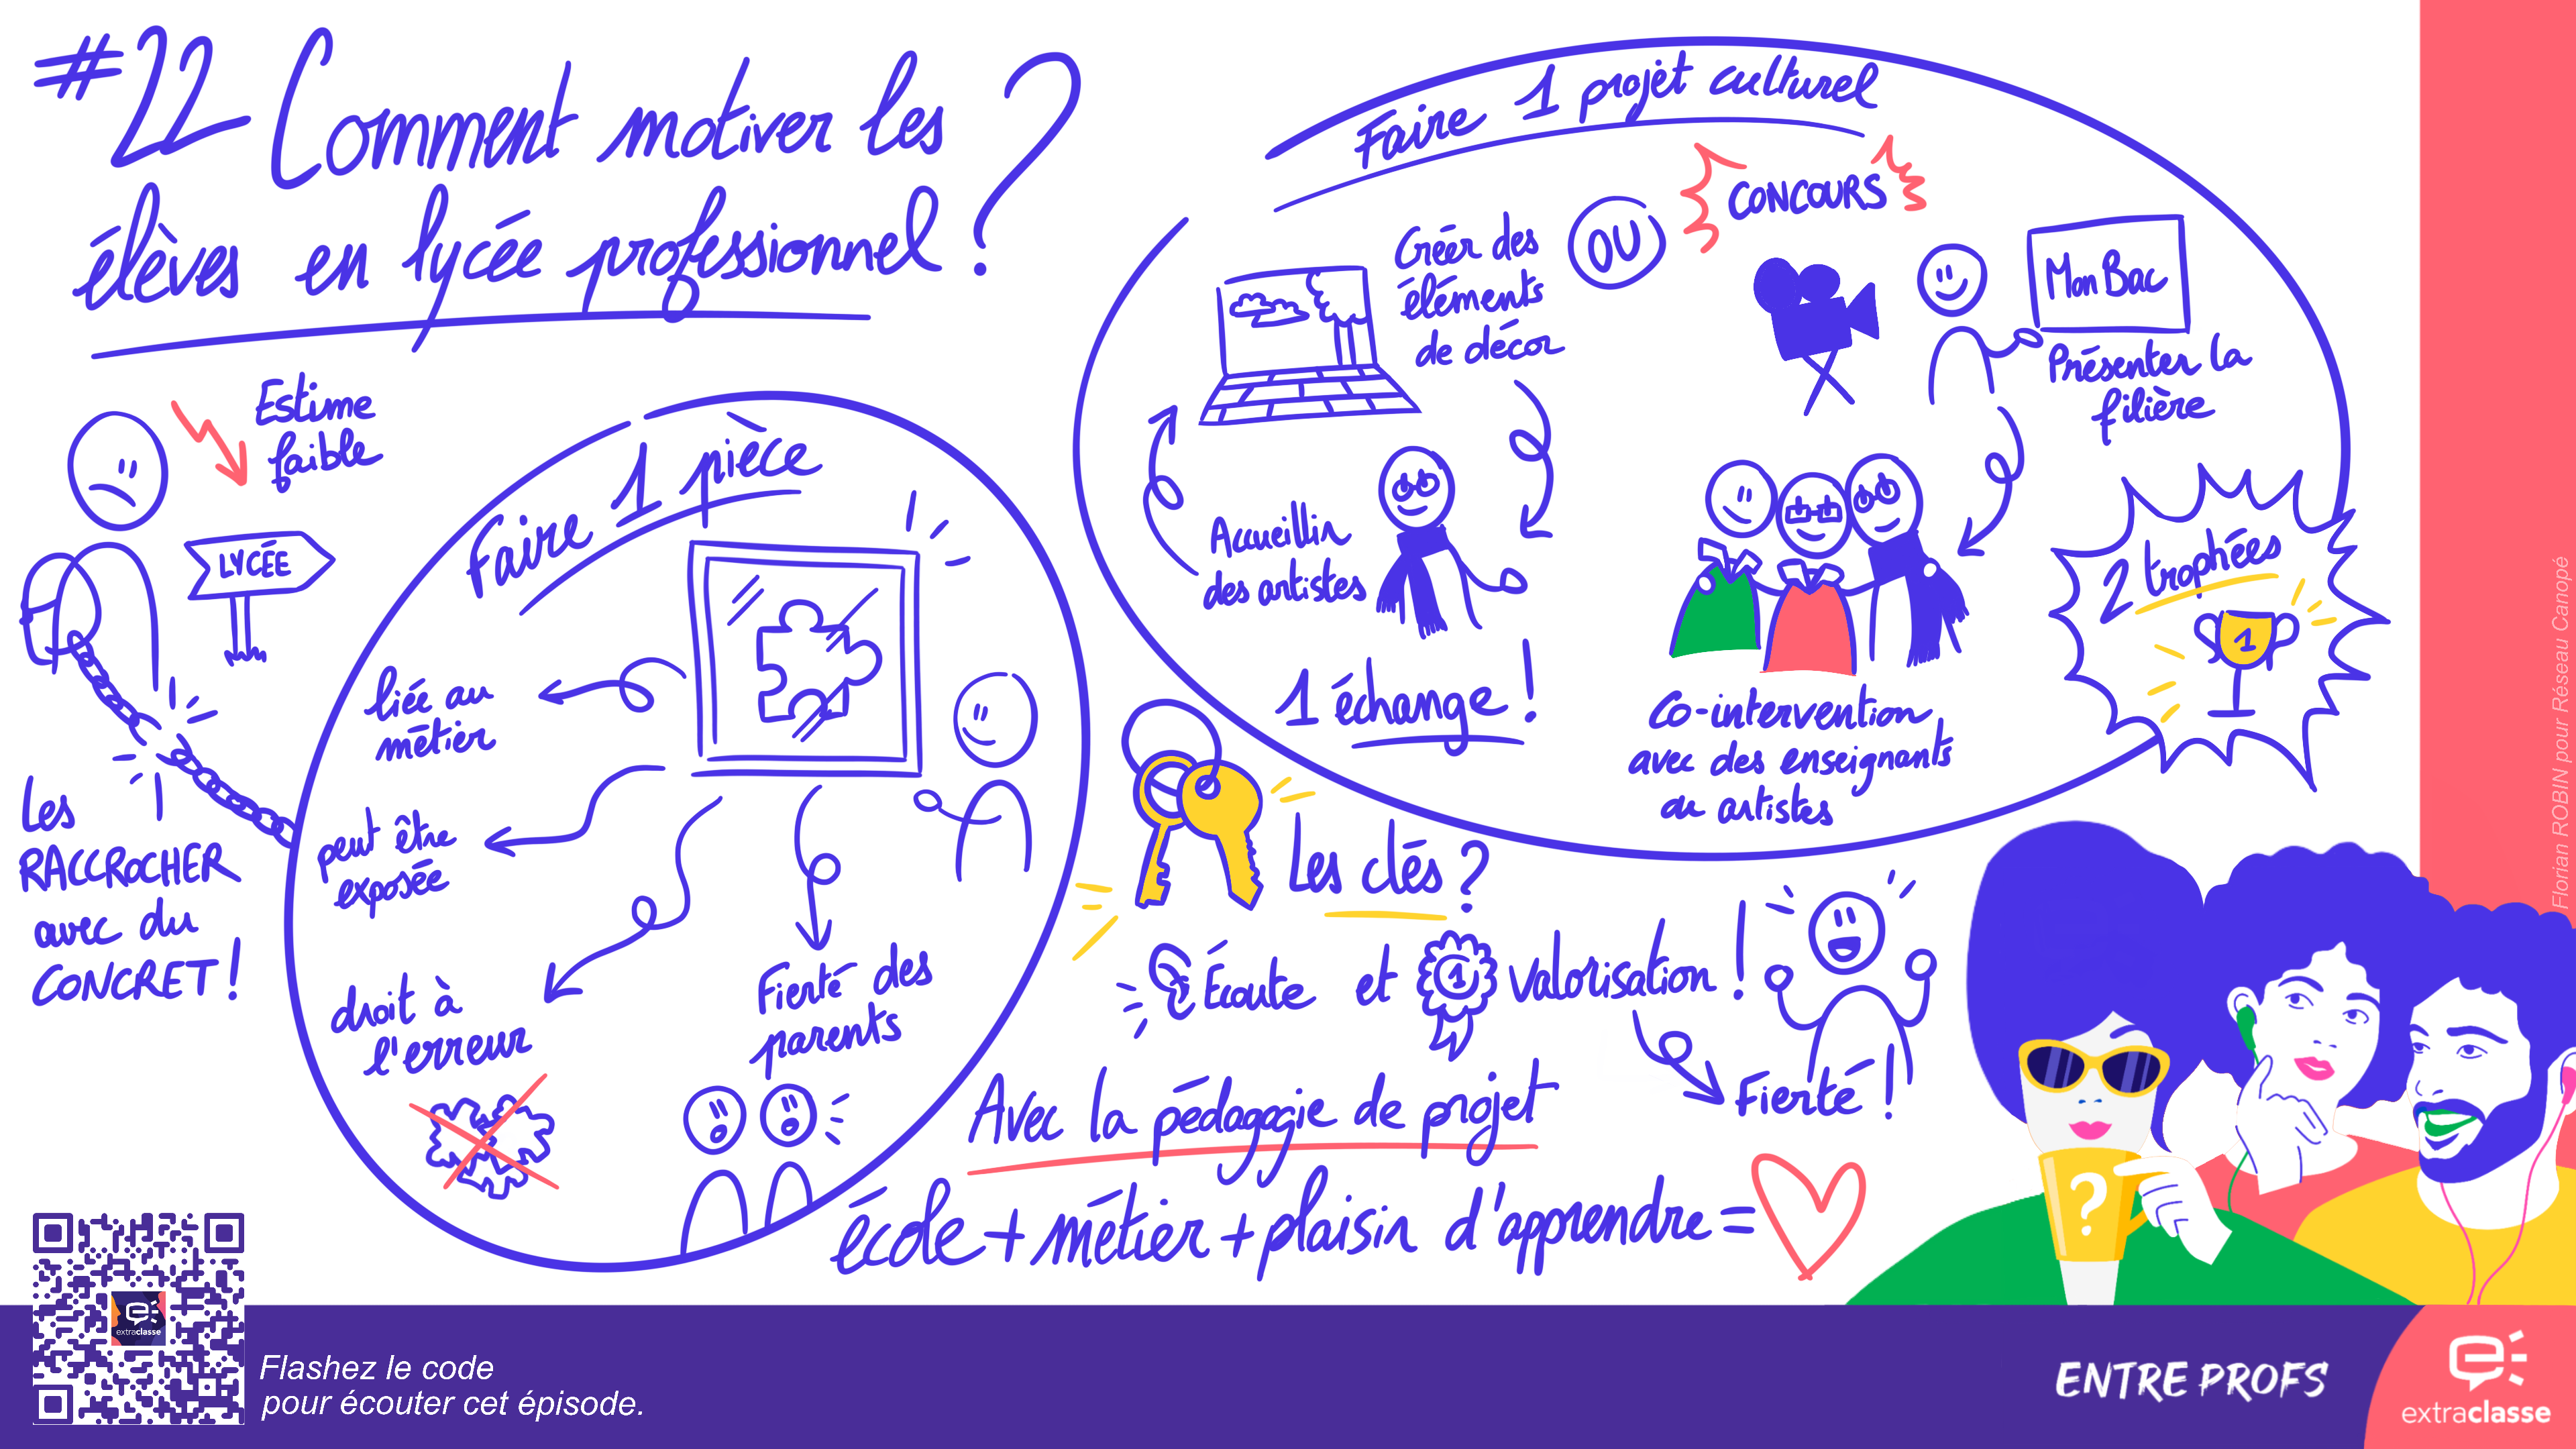 #22 Comment motiver les
élèves en lycée professionnel ?
Estime
faible
LYCÉE
Les
RACCROCHER
avec du
CONCRET !
Faire 1 pièce
liée au
métier
peut être
exposée
droit à
l'erreur
Fierté des
parents
Faire 1 projet culturel
Créer des
éléments
de décor
OU
CONCOURS
Mon Bac
Présenter la
filière
Accueillir
des artistes
1 échange !
Co-intervention
avec des enseignants
ou artistes
2 trophées
1
Les clés ?
Écoute et 1 Valorisation !
Fierté !
Avec la pédagogie de projet
école + métier + plaisir d'apprendre =
?
Florian ROBIN pour Réseau Canopé
extraclasse
Flashez le code
pour écouter cet épisode.
ENTRE PROFS
extraclasse